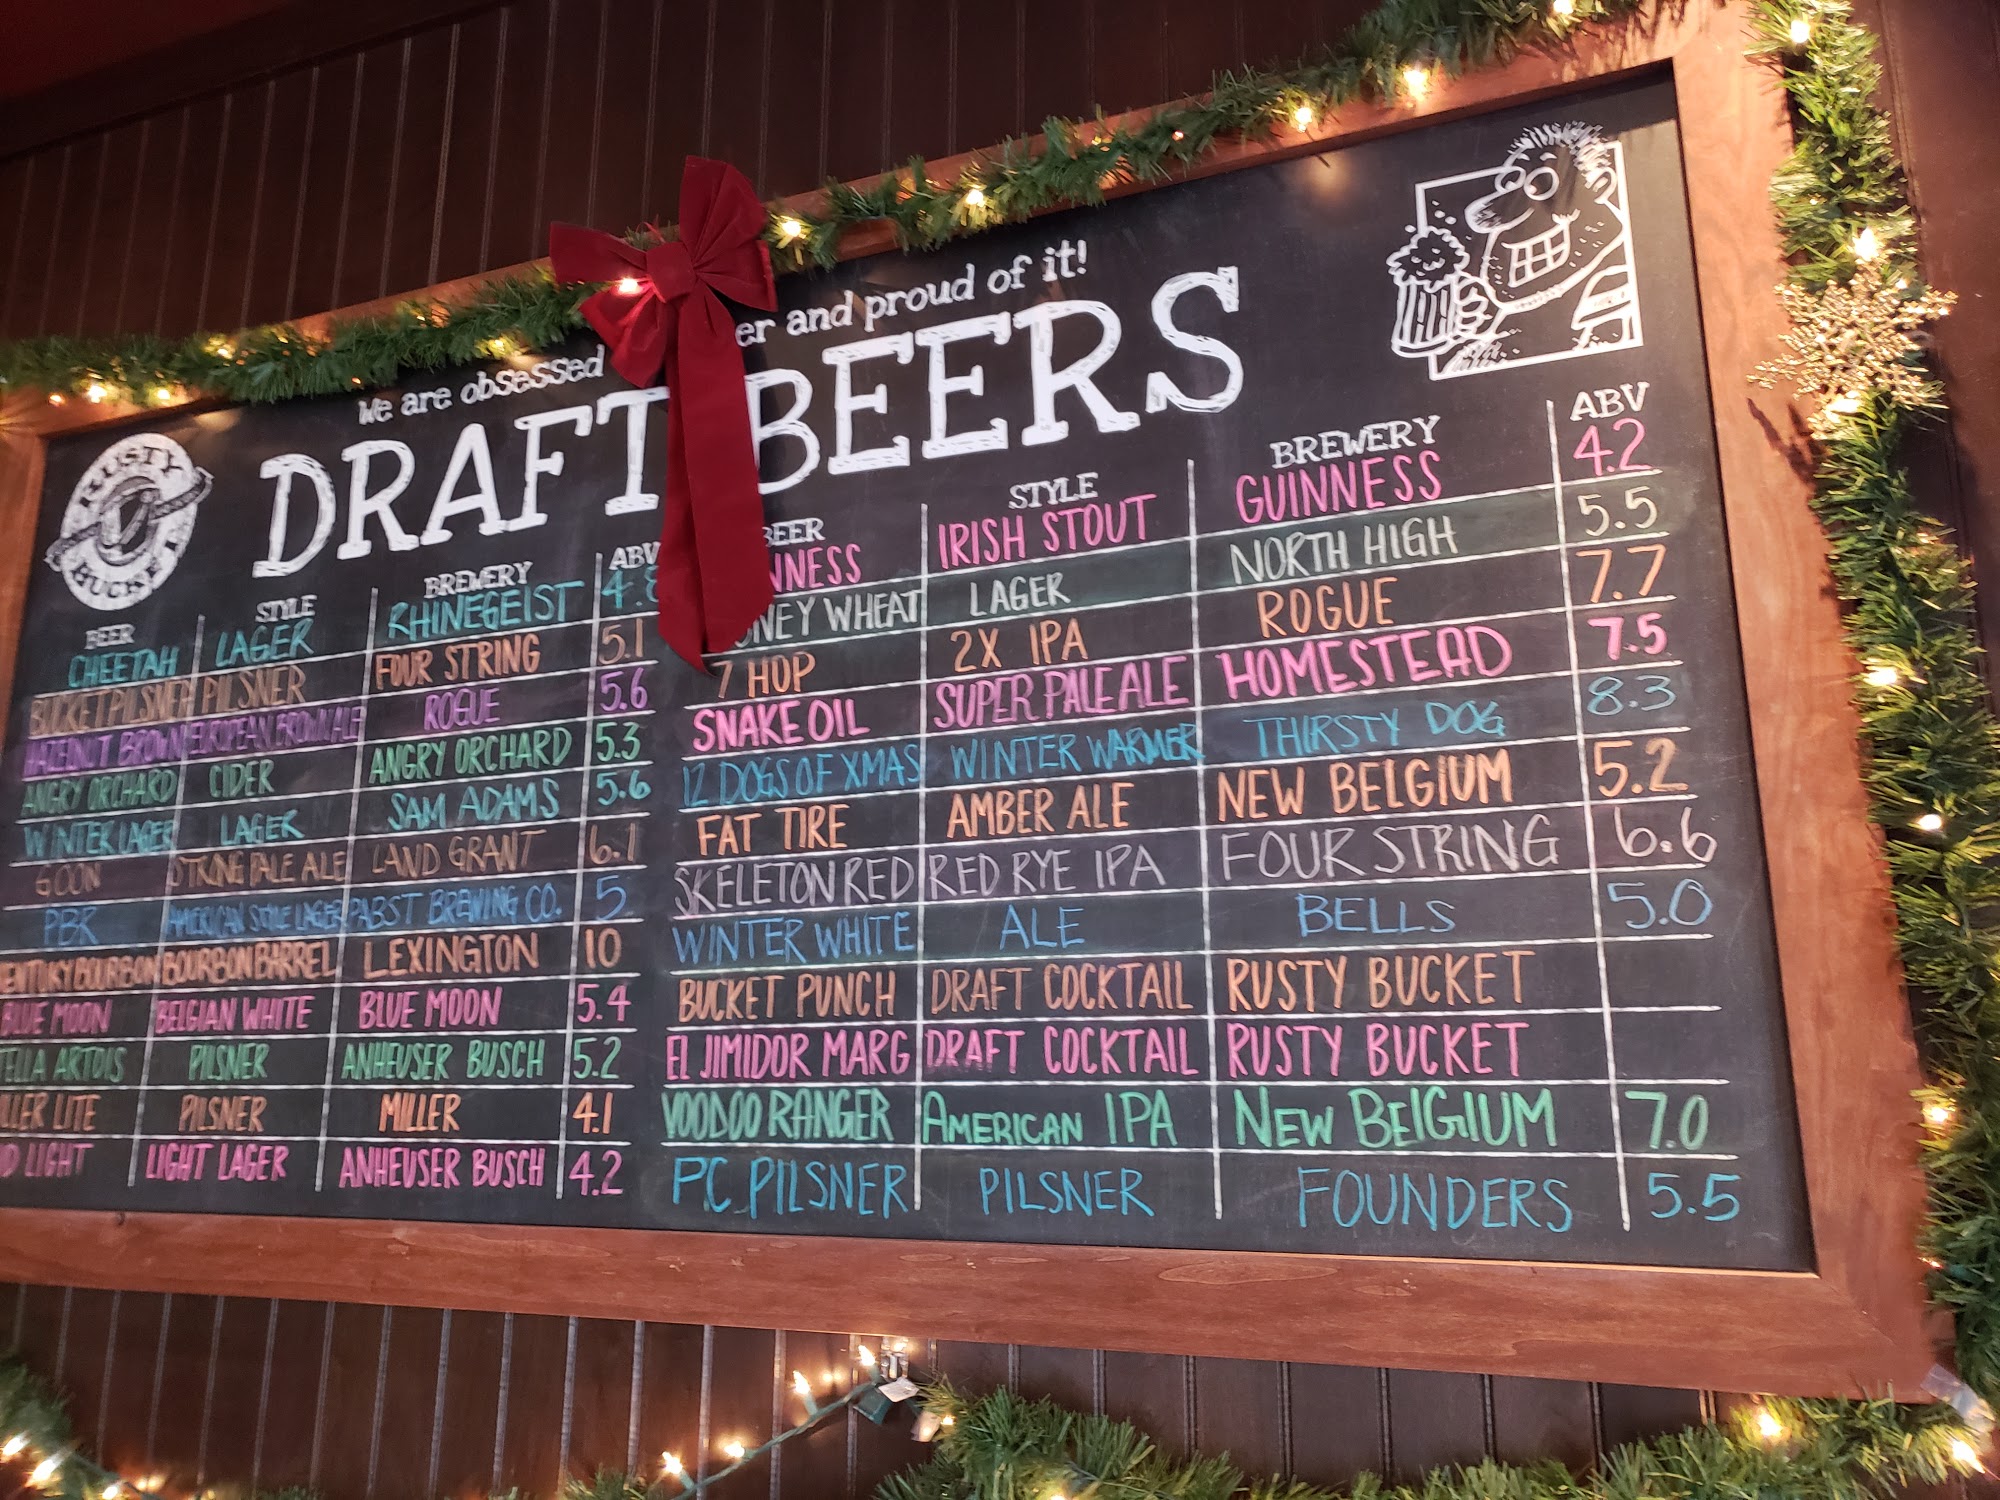 We are obsessed er and proud of it!
DRAFT BEERS
RUSTY
BUCKET
BEER STYLE BREWERY ABV
CHEETAH LAGER RHINEGEIST 4.8
BUCKET PILSNER PILSNER FOUR STRING 5.1
HAZELNUT BROWN EUROPEAN BROWN ALE ROGUE 5.6
ANGRY ORCHARD CIDER ANGRY ORCHARD 5.3
WINTER LAGER LAGER SAM ADAMS 5.6
GOON STRONG PALE ALE LAND GRANT 6.1
PBR AMERICAN STYLE LAGER PABST BREWING CO. 5
KENTUCKY BOURBON BOURBON BARREL LEXINGTON 10
BLUE MOON BELGIAN WHITE BLUE MOON 5.4
TELLA ARTOIS PILSNER ANHEUSER BUSCH 5.2
LLER LITE PILSNER MILLER 4.1
D LIGHT LIGHT LAGER ANHEUSER BUSCH 4.2
BEER STYLE BREWERY ABV
NNESS IRISH STOUT GUINNESS 4.2
ONEY WHEAT LAGER NORTH HIGH 5.5
7 HOP 2X IPA ROGUE 7.7
SNAKE OIL SUPER PALE ALE HOMESTEAD 7.5
12 DOGS OF XMAS WINTER WARMER THIRSTY DOG 8.3
FAT TIRE AMBER ALE NEW BELGIUM 5.2
SKELETON RED RED RYE IPA FOUR STRING 6.6
WINTER WHITE ALE BELLS 5.0
BUCKET PUNCH DRAFT COCKTAIL RUSTY BUCKET
EL JIMIDOR MARG DRAFT COCKTAIL RUSTY BUCKET
VOODOO RANGER AMERICAN IPA NEW BELGIUM 7.0
PC PILSNER PILSNER FOUNDERS 5.5